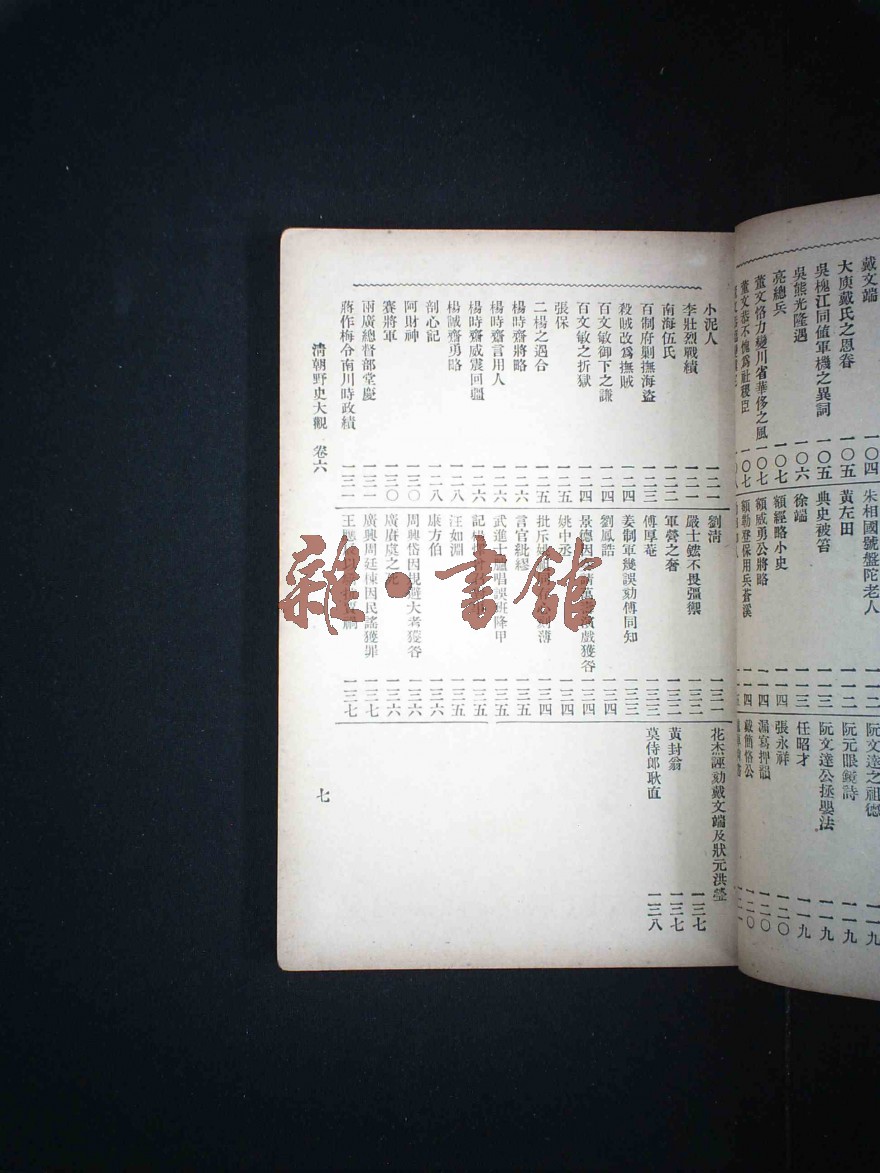 戴文端 一〇四
大庾戴氏之恩眷 一〇五
吳槐江同値軍機之異詞 一〇五
吳熊光隆遇 一〇六
亮總兵 一〇七
董文恪力變川省華侈之風 一〇七
董文恭不愧爲社稷臣 一〇七
朱相國號盤陀老人 一一二
黃左田 一一二
典史被笞 一一三
徐端 一一三
額經略小史 一一四
額威勇公將略 一一四
額勒登保用兵蒼溪 一一四
阮文達之祖德 一一九
阮元眼鏡詩 一一九
阮文達公拯嬰法 一一九
任昭才 一一九
張永祥 一二〇
漏寫押韻 一二〇
戴簡恪公 一二〇
小泥人 一二一
李壯烈戰績 一二一
南海伍氏 一二二
百制府剿撫海盜 一二三
殺賊改爲撫賊 一二四
百文敏御下之謙 一二四
百文敏之折獄 一二四
張保 一二五
二楊之遇合 一二五
楊時齋將略 一二六
楊時齋言用人 一二六
楊時齋威震回疆 一二六
楊誠齋勇略 一二八
剖心記 一二八
阿財神 一三〇
賽將軍 一三〇
兩廣總督部堂慶 一三一
蔣作梅令南川時政績 一三一
劉清 一三一
嚴士鋐不畏彊禦 一三二
軍營之奢 一三二
傅厚菴 一三三
姜制軍幾誤劾傅同知 一三三
劉鳳誥 一三四
景德因 請萬 演戲獲咎 一三四
姚中丞 一三四
批斥 薄 一三四
言官紕繆 一三五
武進士臚唱誤班降甲 一三五
記 一三五
汪如淵 一三五
康方伯 一三六
周興岱因規避大考獲咎 一三六
廣賡虞之死 一三六
廣興周廷棟因民謠獲罪 一三七
王 一三七
花杰誣劾戴文端及狀元洪瑩 一三七
黃封翁 一三七
莫侍郎耿直 一三八
清朝野史大觀 卷六
七
雜·書館